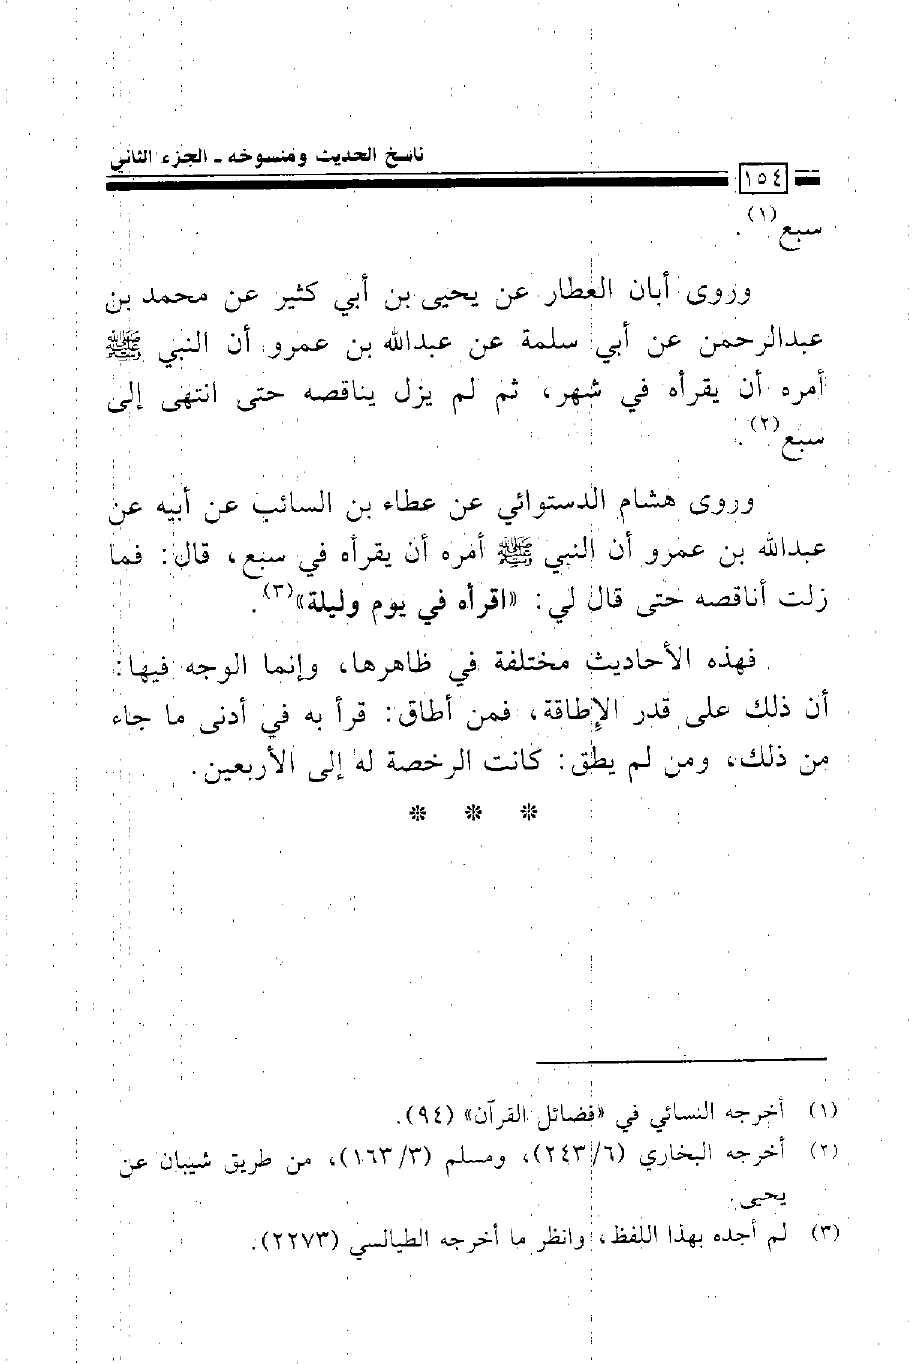 ناسخ الحديث ومنسوخه - الجزء الثاني
١٥٤
سبع(١).
وروى أبان العطار عن يحيى بن أبي كثير عن محمد بن
عبدالرحمن عن أبي سلمة عن عبدالله بن عمرو أن النبي ﷺ
أمره أن يقرأه في شهر، ثم لم يزل يناقصه حتى انتهى إلى
سبع(٢).
وروى هشام الدستوائي عن عطاء بن السائب عن أبيه عن
عبدالله بن عمرو أن النبي ﷺ أمره أن يقرأه في سبع، قال: فما
زلت أناقصه حتى قال لي: «اقرأه في يوم وليلة»(٣).
فهذه الأحاديث مختلفة في ظاهرها، وإنما الوجه فيها:
أن ذلك على قدر الإطاقة، فمن أطاق: قرأ به في أدنى ما جاء
من ذلك، ومن لم يطق: كانت الرخصة له إلى الأربعين.
* * *
(١) أخرجه النسائي في «فضائل القرآن» (٩٤).
(٢) أخرجه البخاري (٢٤٣/٦)، ومسلم (١٦٣/٣)، من طريق شيبان عن
يحيى.
(٣) لم أجده بهذا اللفظ، وانظر ما أخرجه الطيالسي (٢٢٧٣).